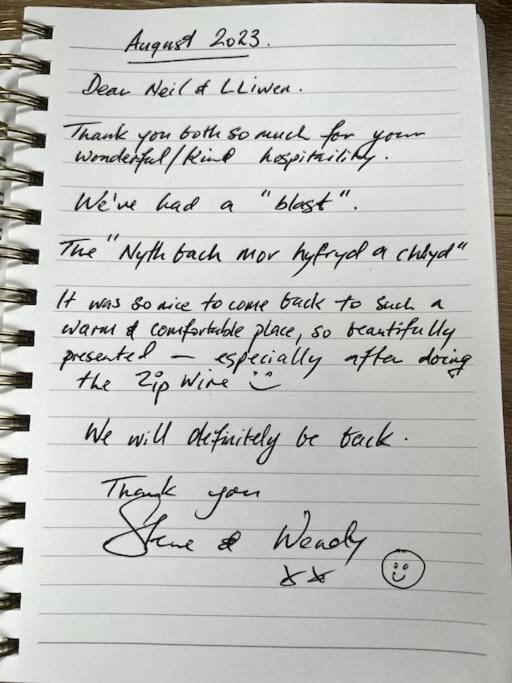 August 2023.
Dear Neil & LLiwen.
Thank you both so much for your
wonderful/kind hospitality.
We've had a "blast".
The "Nyth bach mor hyfryd a chlyd"
It was so nice to come back to such a
warm & comfortable place, so beautifully
presented — especially after doing
the Zip Wire :)
We will definitely be back.
Thank you
Steve & Wendy
xx